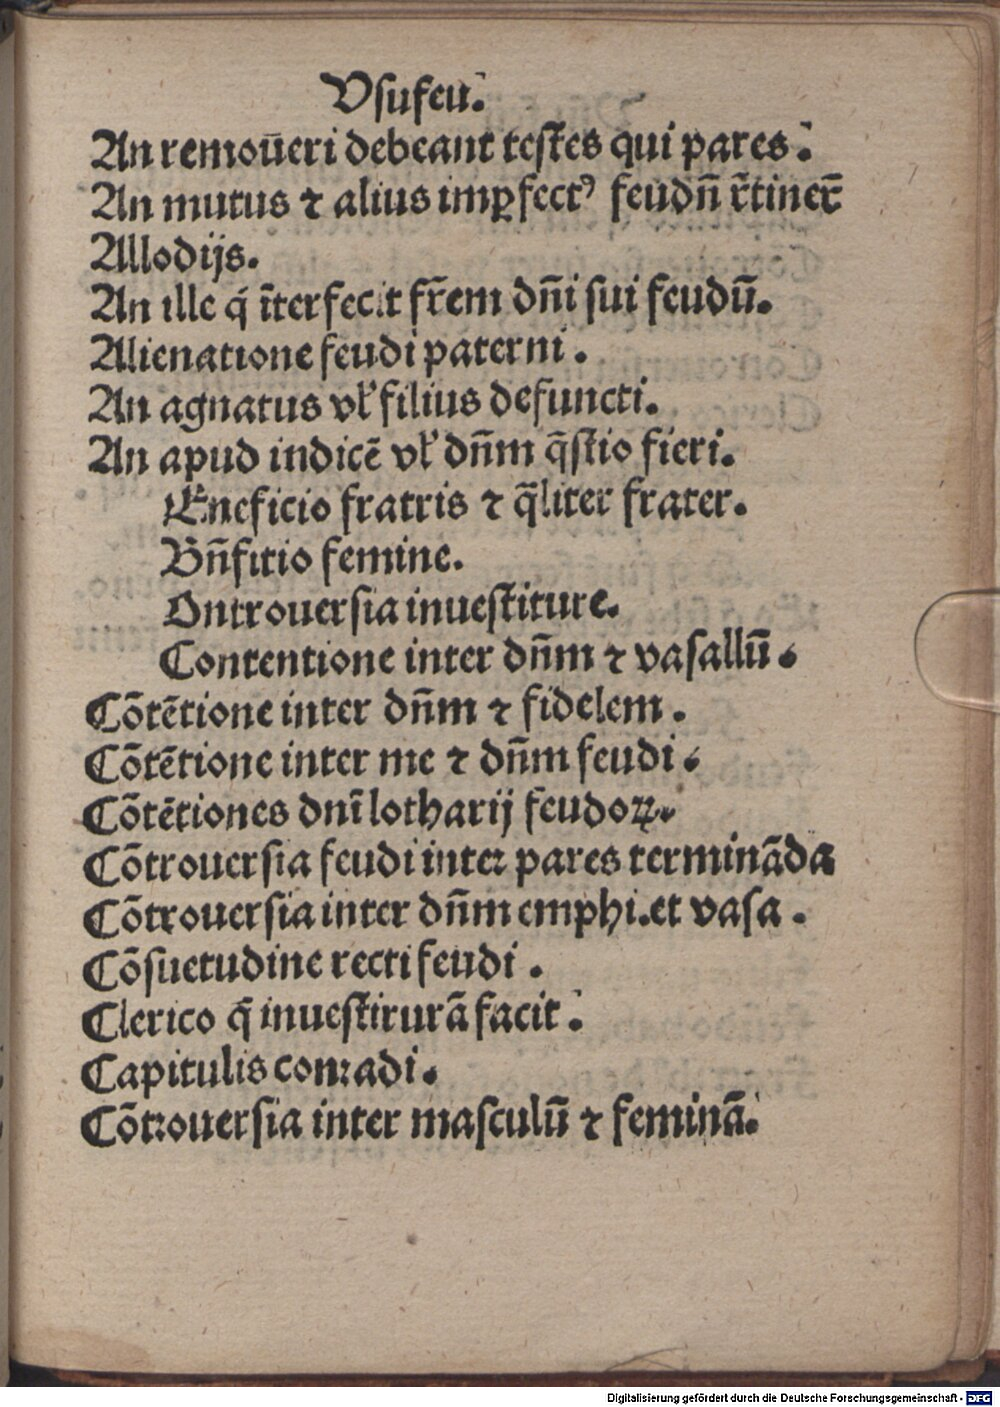 Vsufeu.
An remoūeri debeant testes qui pares.
An mutus ⁊ alius imꝑfectꝰ feudn̄ r̄tinet̄
Allodijs.
An ille q̄ īterfecit fr̄em dn̄i sui feudū.
Alienatione feudi paterni.
An agnatus vl̓ filius defuncti.
An apud indicē vl̓ dn̄m q̄stio fieri.
Eneficio fratris ⁊ q̄liter frater.
Bn̄fitio femine.
Ontrouersia inuestiture.
Contentione inter dn̄m ⁊ vasallū.
Cōtētione inter dn̄m ⁊ fidelem.
Cōtētione inter me ⁊ dn̄m feudi.
Cōtētiones dnī lotharij feudoꝝ.
Cōtrouersia feudi inter pares termināda
Cōtrouersia inter dn̄m emphi.et vasa.
Cōsuetudine recti feudi.
Clerico q̄ inuestirurā facit.
Capitulis conradi.
Cōtrouersia inter masculū ⁊ feminā.
Digitalisierung gefördert durch die Deutsche Forschungsgemeinschaft - DFG